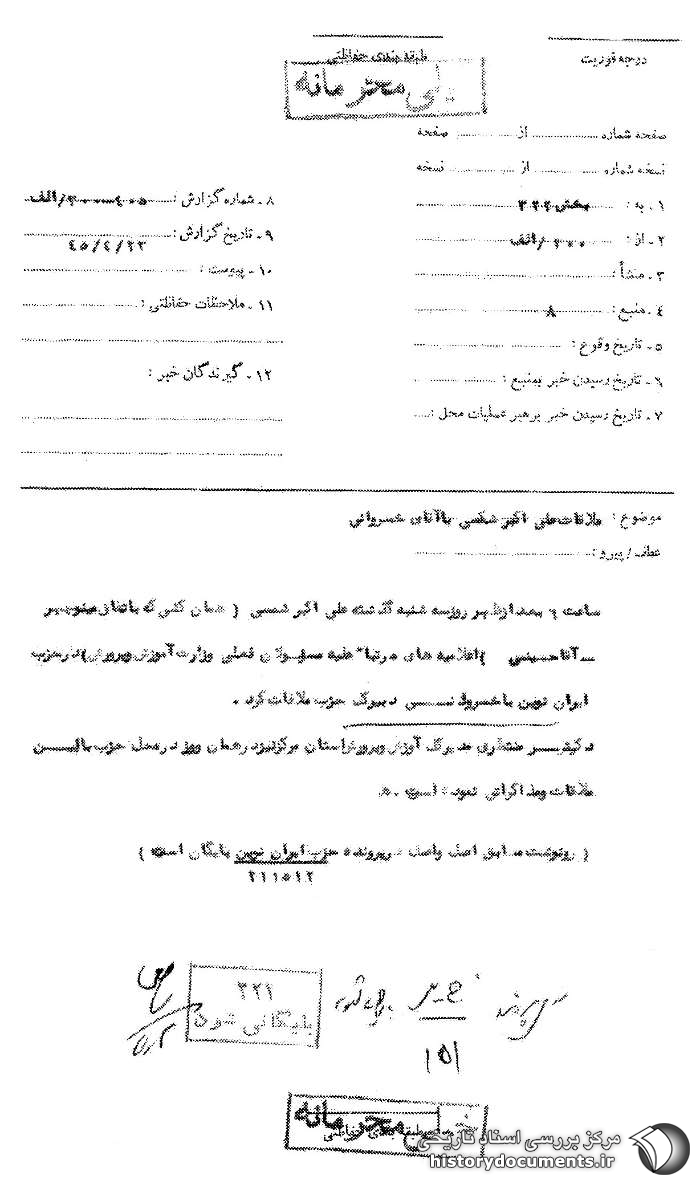 درجه فوریت
طبقه بندی حفاظتی
خیلی محرمانه
صفحه شماره از صفحه
نسخه شماره از نسخه
۱ - به : بخش ۳۲۲
۲ - از : ۳۰۰/الف
۳ - منشأ :
۴ - منبع : ۸
۵ - تاریخ وقوع :
۶ - تاریخ رسیدن خبر بمنبع :
۷ - تاریخ رسیدن خبر برهبر عملیات محل :
۸ - شماره گزارش : /الف
۹ - تاریخ گزارش : ۴۵/۴/۲۳
۱۰ - پیوست :
۱۱ - ملاحظات حفاظتی :
۱۲ - گیرندگان خبر :
موضوع : ملاقات علی اکبر شمسی با آقای خسروانی
عطف/پیرو :
ساعت ۶ بعدازظهر روز سه شنبه گذشته علی اکبر شمسی ( همان کسی که باتفاق منوچهر
آقاحسینی اعلامیه های مرتبا" علیه مسئولان فعلی وزارت آموزش وپرورش ) در حزب
ایران نوین با دبیرکل حزب ملاقات کرد .
دکتر منتظری مدیرکل آموزش وپرورش استان مرکز نیز در همان روز در محل حزب
ملاقات ومذاکراتی نموده است . ه
( رونوشت مطابق اصل واصل در پرونده حزب ایران نوین بایگان است )
۲۱۱۵۱۲
۳۲۱
بایگانی شود
۱۵۱
خیلی محرمانه
طبقه بندی حفاظتی
مرکز بررسی اسناد تاریخی
historydocuments.ir